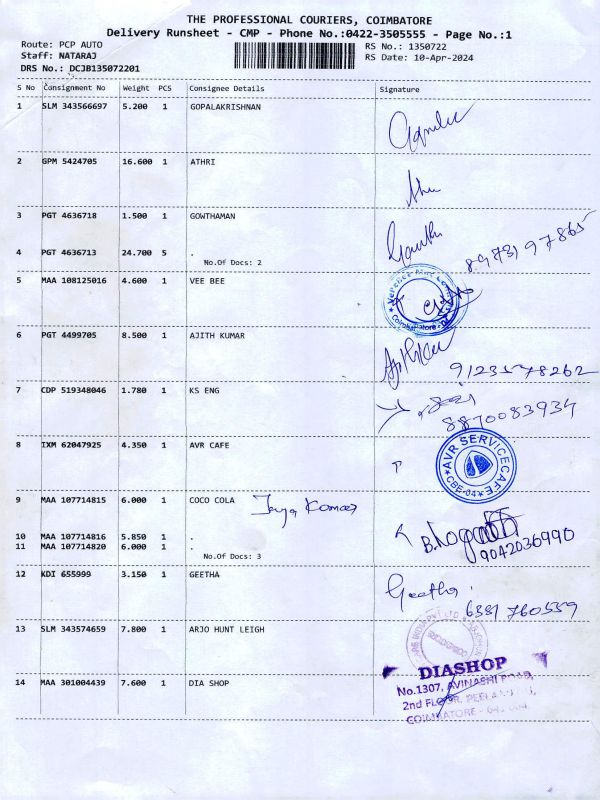 THE PROFESSIONAL COURIERS, COIMBATORE
Delivery Runsheet - CMP - Phone No.:0422-3505555 - Page No.:1
Route: PCP AUTO
RS No.: 1350722
Staff: NATARAJ
RS Date: 10-Apr-2024
DRS No.: DCJB135072201
S No Consignment No Weight PCS Consignee Details Signature
1 SLM 343566697 5.200 1 GOPALAKRISHNAN
2 GPM 5424705 16.600 1 ATHRI
3 PGT 4636718 1.500 1 GOWTHAMAN
4 PGT 4636713 24.700 5 .
No.Of Docs: 2
8973197865
5 MAA 108125016 4.600 1 VEE BEE
6 PGT 4499705 8.500 1 AJITH KUMAR
9123578262
7 CDP 519348046 1.780 1 KS ENG
8870083934
8 IXM 62047925 4.350 1 AVR CAFE
AVR SERVICE CAFE
CBE-04
9 MAA 107714815 6.000 1 COCO COLA
10 MAA 107714816 5.850 1 .
11 MAA 107714820 6.000 1 .
No.Of Docs: 3
9042036990
12 KDI 655999 3.150 1 GEETHA
Geetha
6381760559
13 SLM 343574659 7.800 1 ARJO HUNT LEIGH
DIASHOP
No.1307, AVINASHI ROAD,
2nd FLOOR,
COIMBATORE
14 MAA 301004439 7.600 1 DIA SHOP